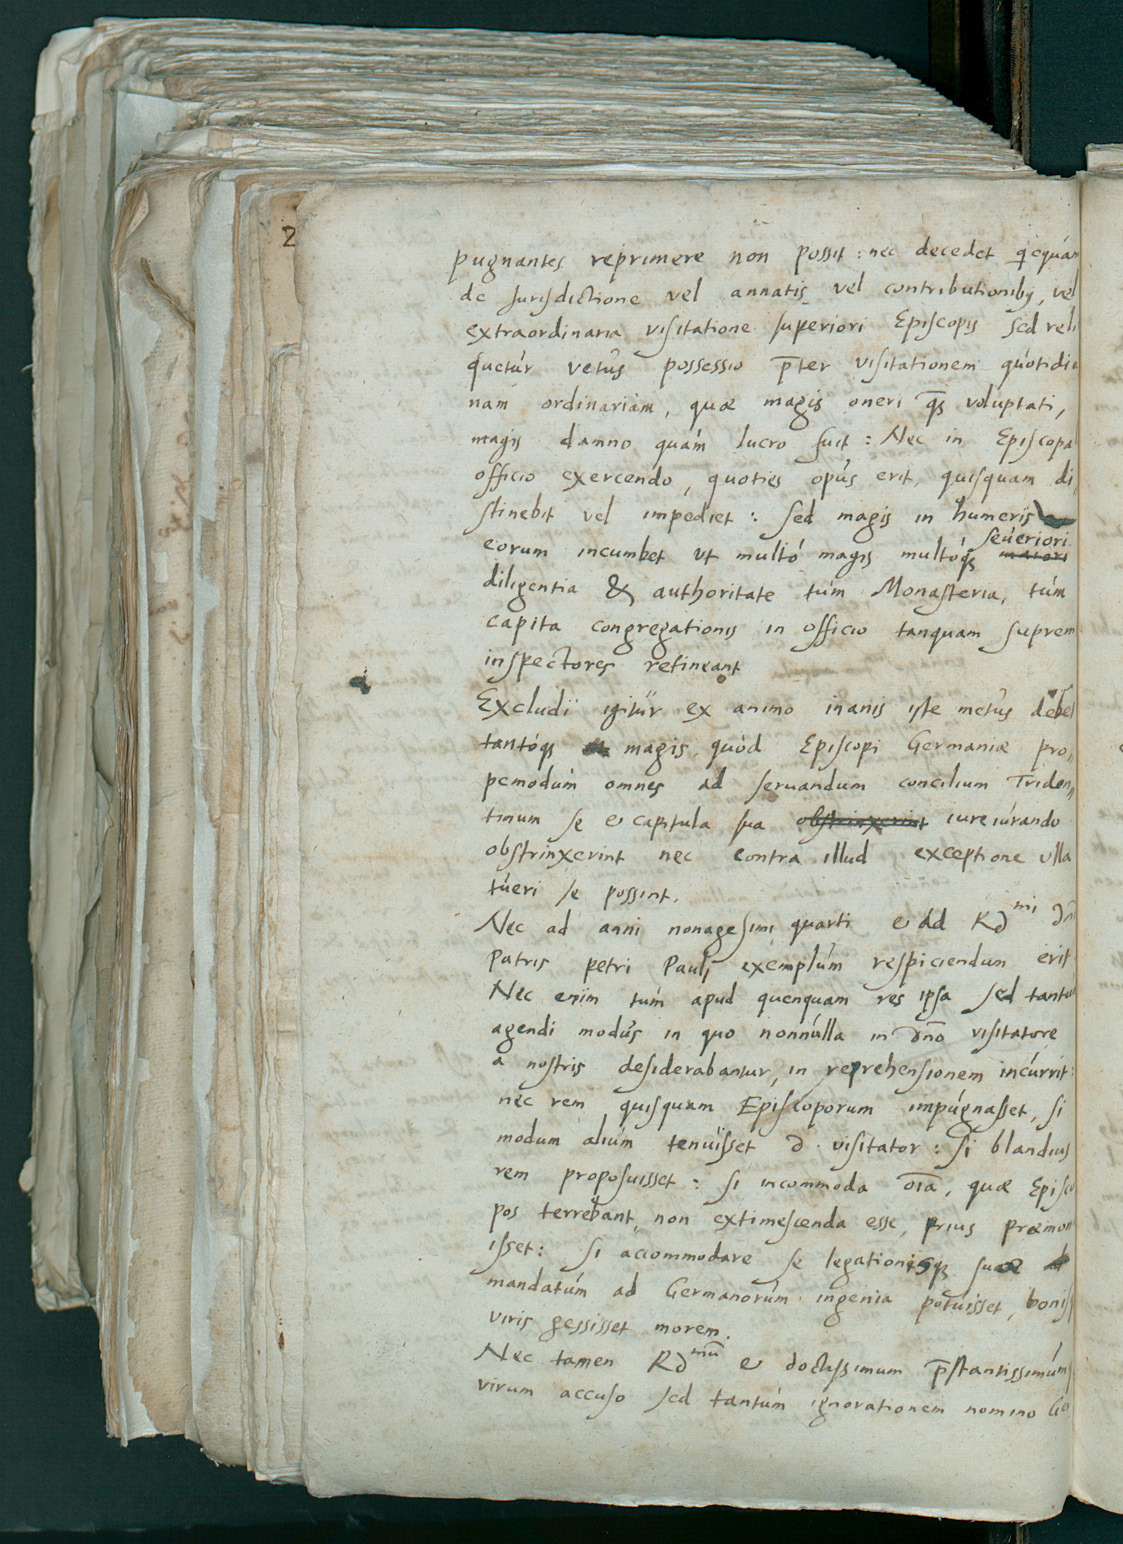 2
pugnantes reprimere non possit : nec decedet q̄cquā
de Jurisdictione vel annatis, vel contributionib9, vel
extraordinaria visitatione superiori Episcopis sed reli
quetúr vetús possessio p̄ter visitationem quotidia
nam ordinariam, quæ magis oneri q̄3 voluptati,
magis damno quám lucro fuit : Nec in Episcopa
officio exercendo, quoties opús erit, quisquam di
stinebit vel impediet : sed magis in humeris
seúeriori
eorum incumbet vt multó magis multoq3 maiori
diligentia & authoritate túm Monasteria, túm
capita congregationis in officio tanquam suprem
inspectores retineant
Excludi igitúr ex animo inanis iste metús debet
tantóq3 magis, quòd Episcopi Germaniæ pro,,
pemodúm omnes ad seruandum concilium Triden,,
tinum se & capitula sua obstrinxerint iureiúrando
obstrinxerint nec contra illud exceptione vlla
túeri se possint.
Nec ad anni nonagesimi quarti & ad Rd mi dn̄
Patris petri Pauli exemplúm respiciendum erit
Nec enim túm apud quenquam res ipsa sed tantú
agendi modús in quo nonnúlla in dn̄o visitatore
a nostris desiderabantur, in reprehensionem incúrrit :
nec rem quisquam Episcoporum impúgnasset, si
modum aliúm tenuisset d. visitator : si blandius
rem proposuisset : si incommoda oīa, quæ Episco
pos terrebant, non extimescenda esse, prius præmon
isset : si accommodare se legationisq3 suæ
mandatúm ad Germanorúm ingenia potúisset, bonis
viris gessisset morem.
Nec tamen Rd mū & doctissimum p̄stantissimúm
virum accuso sed tantúm ignorationem nomino Ge